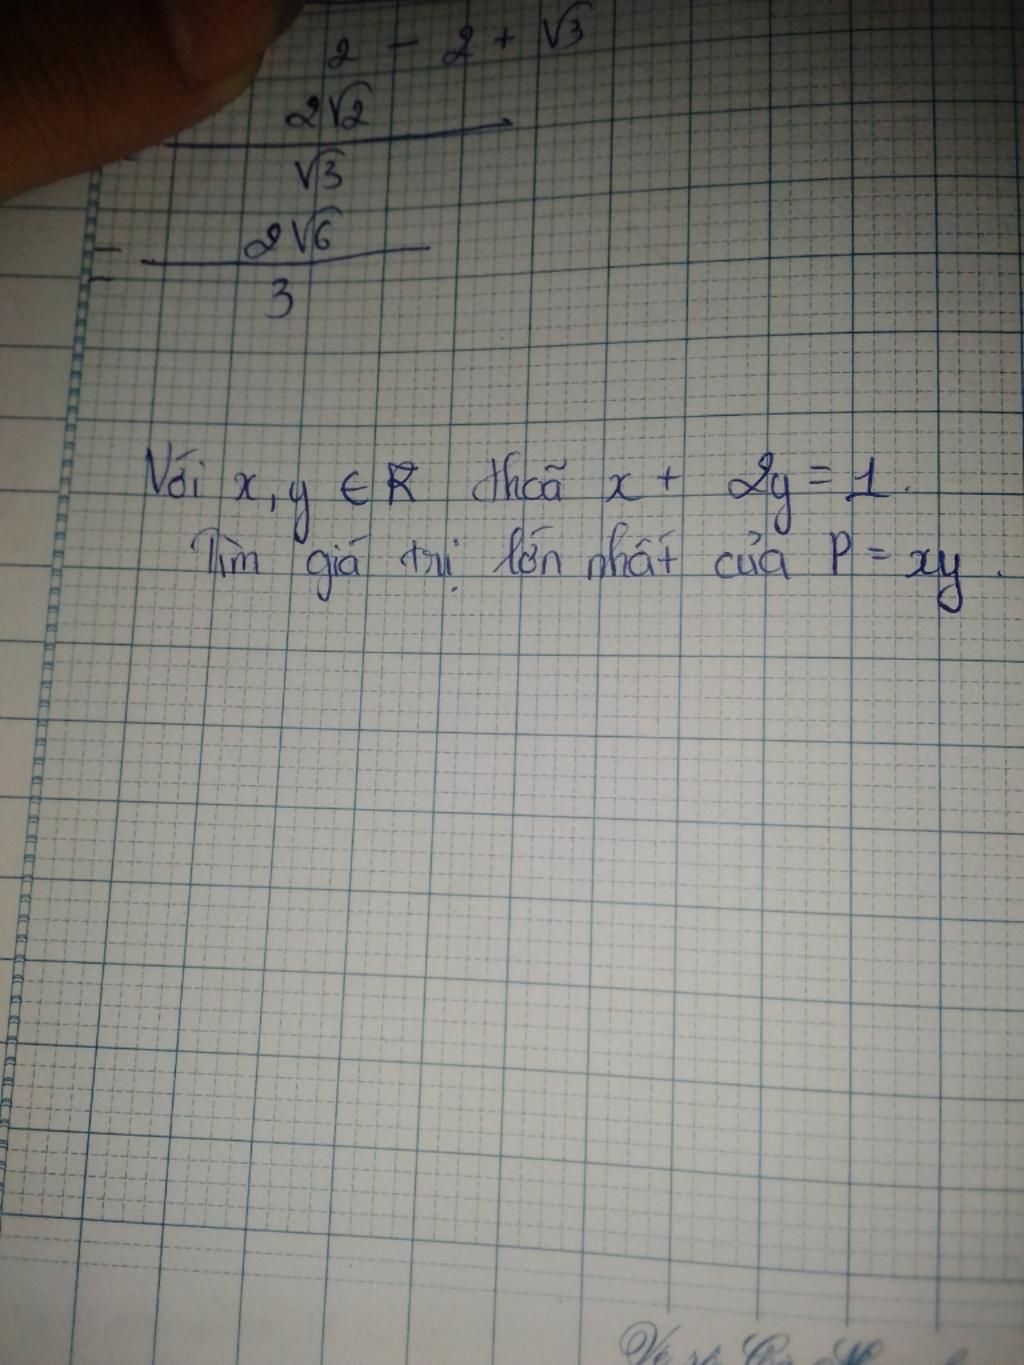 2 - 2 + √3
2√2
√3
= 2√6
3
Với x, y ∈ R thoã x + 2y = 1.
Tìm giá trị lớn nhất của P = xy.